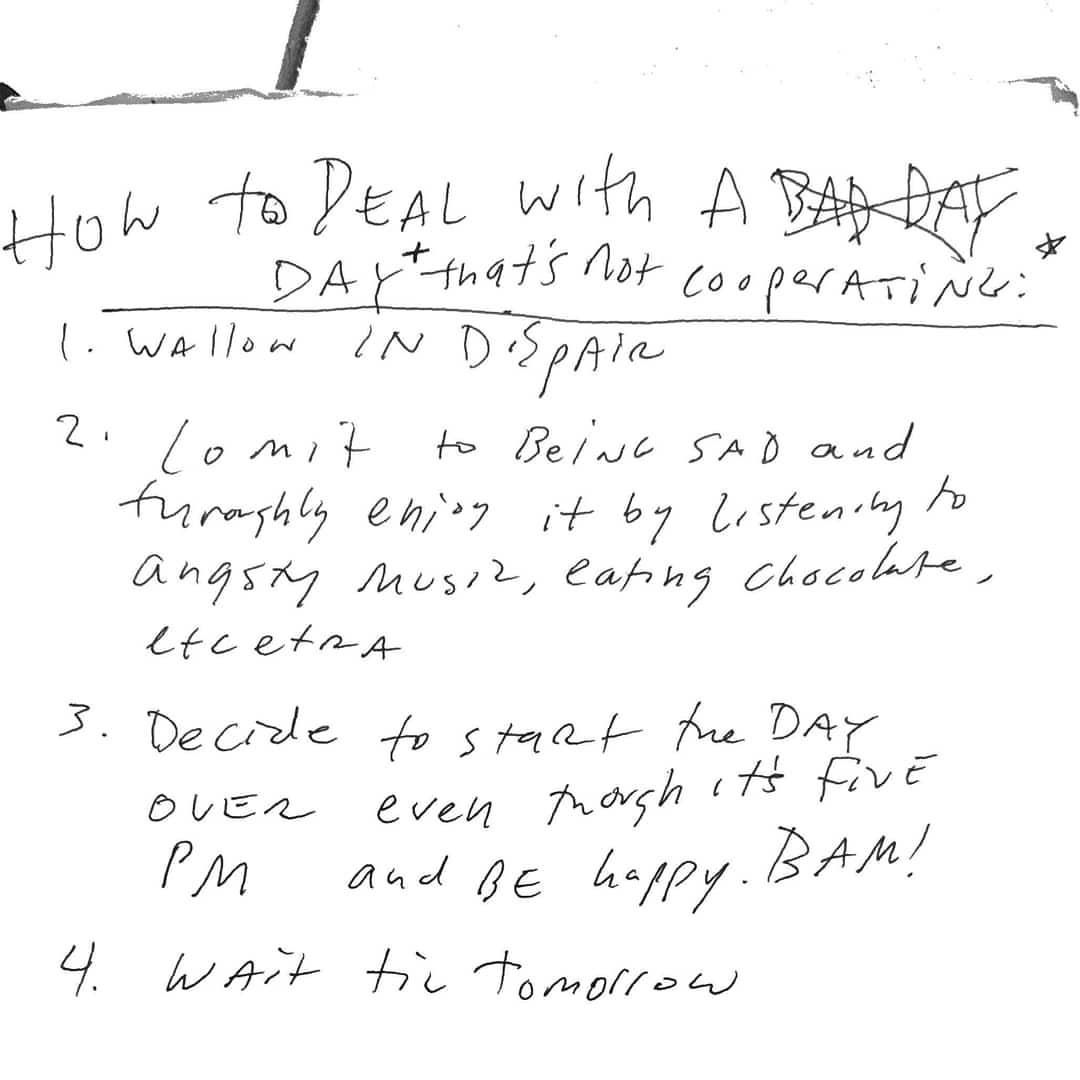 HOW to DEAL with A BAD DAY
DAY + that's Not cooperATiNG: *
1. WAllow IN DiSpAIR
2. Comit to BeiNG SAD and
thuroughly enjoy it by listening to
angsty music, eating chocolate,
etcetRA
3. Decide to staRt the DAY
OVER even though it's FIVE
PM and BE happy. BAM!
4. WAit til Tomorrow